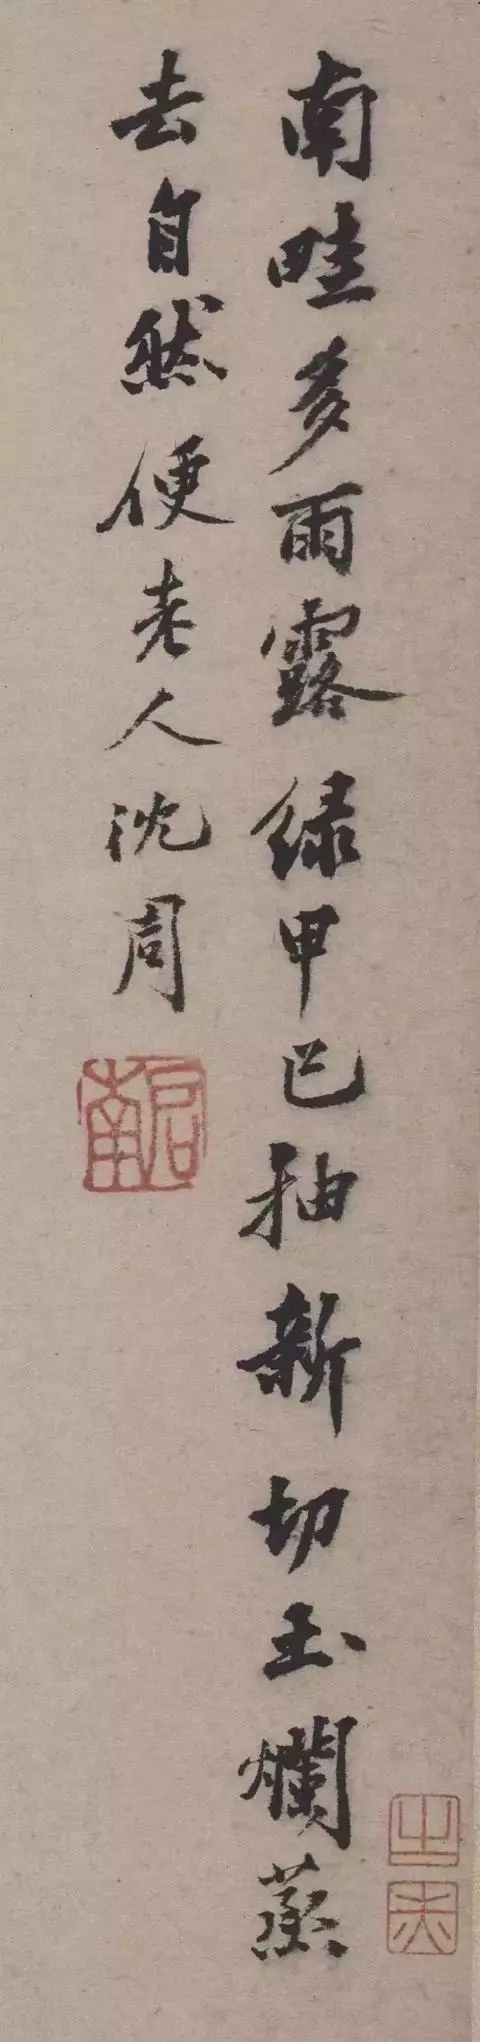 南畦多雨露綠甲已抽新切玉爛蒸
去自然便老人沈周
啟南